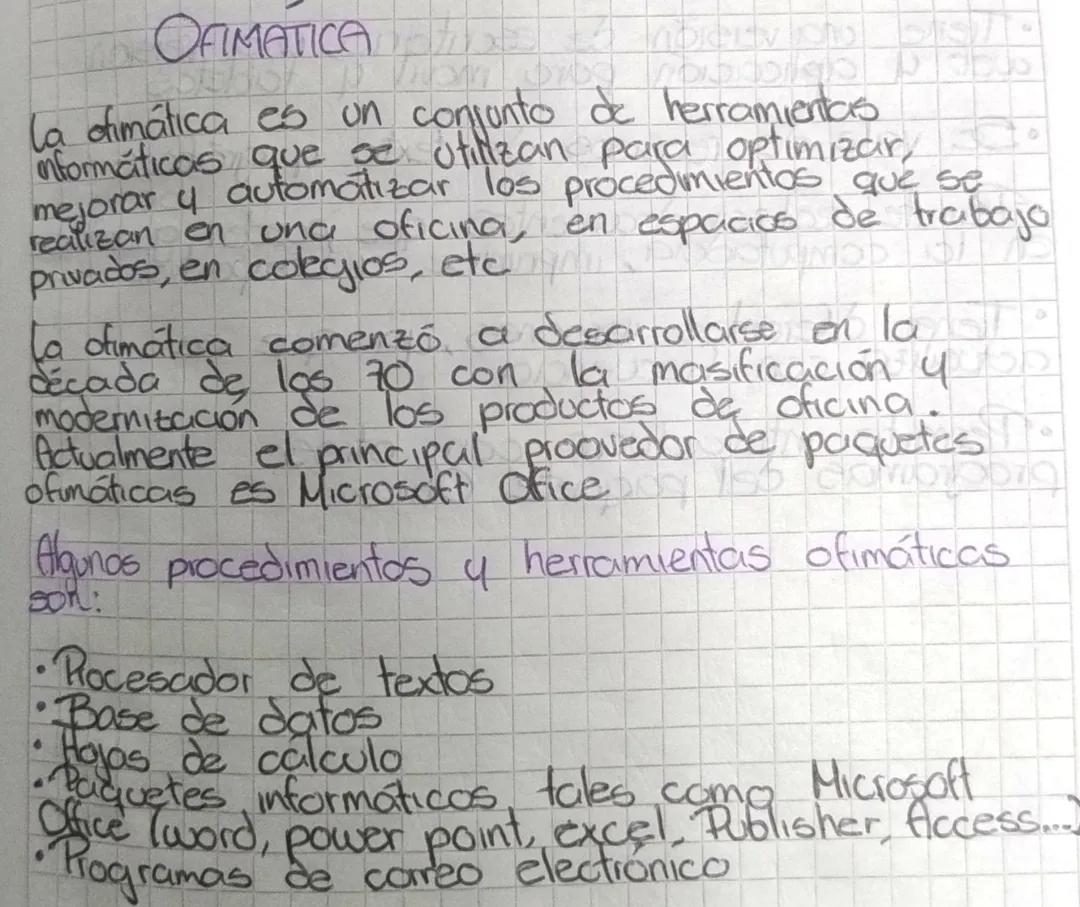 OFIMÁTICA
La ofimática es un conjunto de herramientas
informáticas que se utilizan para optimizar,
mejorar y automatizar los procedimientos que se
realizan en una oficina, en espacios de trabajo
privados, en colegios, etc
La ofimática comenzó a desarrollarse en la
década de los 70 con la masificación y
modernización de los productos de oficina.
Actualmente el principal proovedor de paquetes
ofimáticas es Microsoft Ofice
Algunos procedimientos y herramientas ofimáticas
son:
• Procesador de textos
• Base de datos
• Hojas de cálculo
• Paquetes informáticos, tales como Microsoft
Office (word, power point, excel, Publisher, Access....)
• Programas de correo electrónico